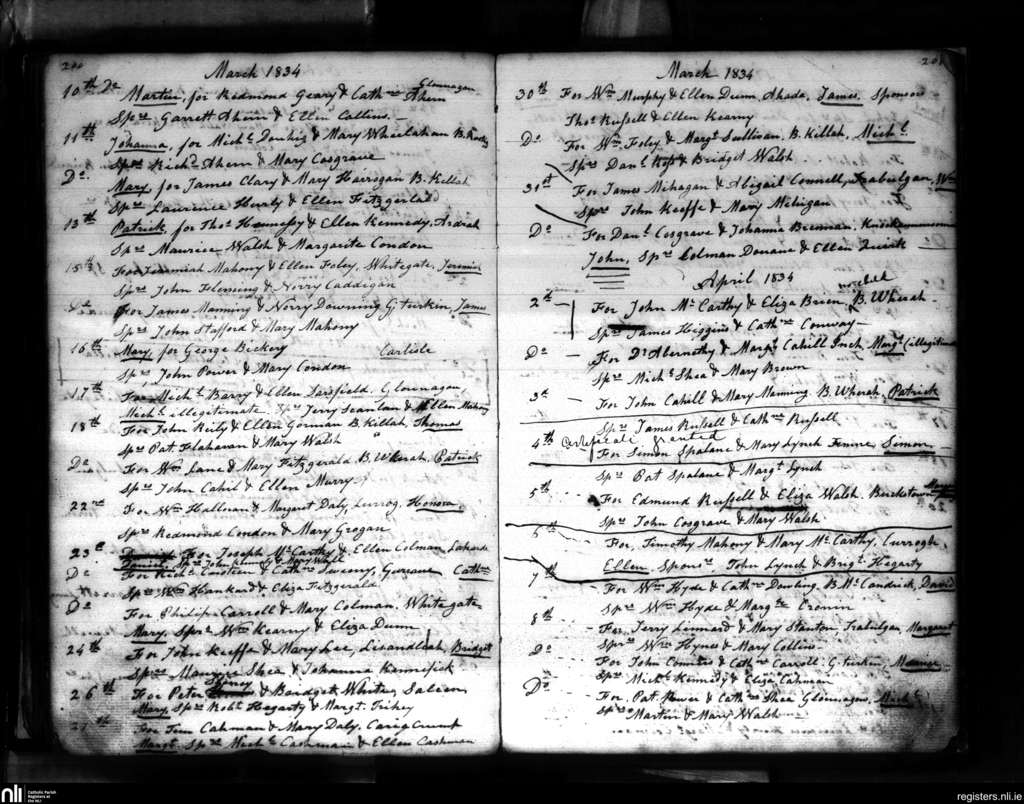 200
March 1834
10th Do Martin, for Redmond Geary & Cathne Ahern Glounagan
Sprs Garrett Ahern & Ellen Collins.
11th Johanna, for Michl & Mary Wheelahan B.
Sprs Richd Ahern & Mary Cosgrave
Do Mary for James Clary & Mary Harrigan B. Killah
Sprs Laurence Hurly & Ellen Fitzgerald
13th Patrick, for Thos Hennessy & Ellen Kennedy, Ardrah
Sprs Maurice Walsh & Margarite Condon
15th For Jeremiah Mahony & Ellen Foley, Whitegate,
Sprs John Fleming & Norry Caddigan
Do For James Manning & Norry Downing G,turkin, James
Sprs John Stafford & Mary Mahony
16th Mary, for George Bickery Carlisle
Sprs, John Power & Mary Condon
17th For Michl Barry & Ellen Glounagan,
Michl illegitimate, Sprs Jerry Scanlan & Ellen Mahony
18th For John Reily & Ellen Gorman B. Killah, Thomas
Sprs Pat Flahavan & Mary Walsh
Do For Wm Lane & Mary Fitzgerald, B. Wherah, Patrick
Sprs John Cahil & Ellen Murry
22nd For Wm Hallinan & Margaret Daly, Currog, Honora,
Sprs Redmond Condon & Mary Grogan
23d For Joseph McCarthy & Ellen Colman,
Daniel, Sprs John & Mary Wall
Do For Richd & Cathne Sweeny, Gurrane Cathne
Sprs Wm Hankard & Eliza Fitzgerald
Do For Philip Carroll & Mary Colman, Whitegate
Mary, Sprs Wm Kearny & Eliza Dunn
24th For John Keeffe & Mary Lee, Lisandleah, Bridget
Sprs Maurice Shea & Johanna Kennifick
26th For Peter & Bardget Whitney Saleen
Mary Sprs Robt Hegarty & Margt
27th For Tim Cahman & Mary Daly, Carig
Margt Sprs Michl Cashman & Ellen Cashman
201
March 1834
30th For Wm Murphy & Ellen Dunn, Ahada, James, Sponsors
Thos Russell & Ellen Kearny
Do For Wm Foley & Margt Sullivan, B. Killah, Michl
Sprs Danl & Bridget Walsh
31st For James Mihagan & Abigail Connell, Trabulgan, Wm
Sprs John Keeffe & Mary Mihigan
Do For Danl Cosgrave & Johanna Brennan,
John, Sprs Colman Donane & Ellen Quirk
April 1834
2d For John McCarthy & Eliza Brien, B. Wherah
Sprs James Higgins & Cathne Conway
Do For Ds Abernethy & Margt Cahill Inch, Margt (illegitimate
Sprs Michl Shea & Mary Brown
3d For John Cahill & Mary Manning B. Wherah, Patrick
Sprs James Russell & Cathne Russell
4th Certificate granted
For Simon Spalane & Mary Lynch Simon,
Sprs Pat Spalane & Margt Lynch
5th For Edmund Russell & Eliza Walsh
Sprs John Cosgrave & Mary Walsh
6th For, Timothy Mahony & Mary McCarthy, Currogh
Ellen, Sponsrs John Lynch & Brigt Hegarty
7th For Wm Hyde & Cathne B. McCandrick, David
Sprs Wm Hyde & Margte Cronin
8th For Jerry Linnard & Mary Stanton, Trabulgan, Margaret
Sprs Wm Hynes & Mary Collins
Do For John & Cathne Carroll G.turkin,
Sprs Michl Kennedy & Eliza Cahman
Do For Pat Power & Cathne Shea Glounagan, Michl
Sprs Martin & Mary Walsh
nli Catholic Parish Registers at the NLI
registers.nli.ie